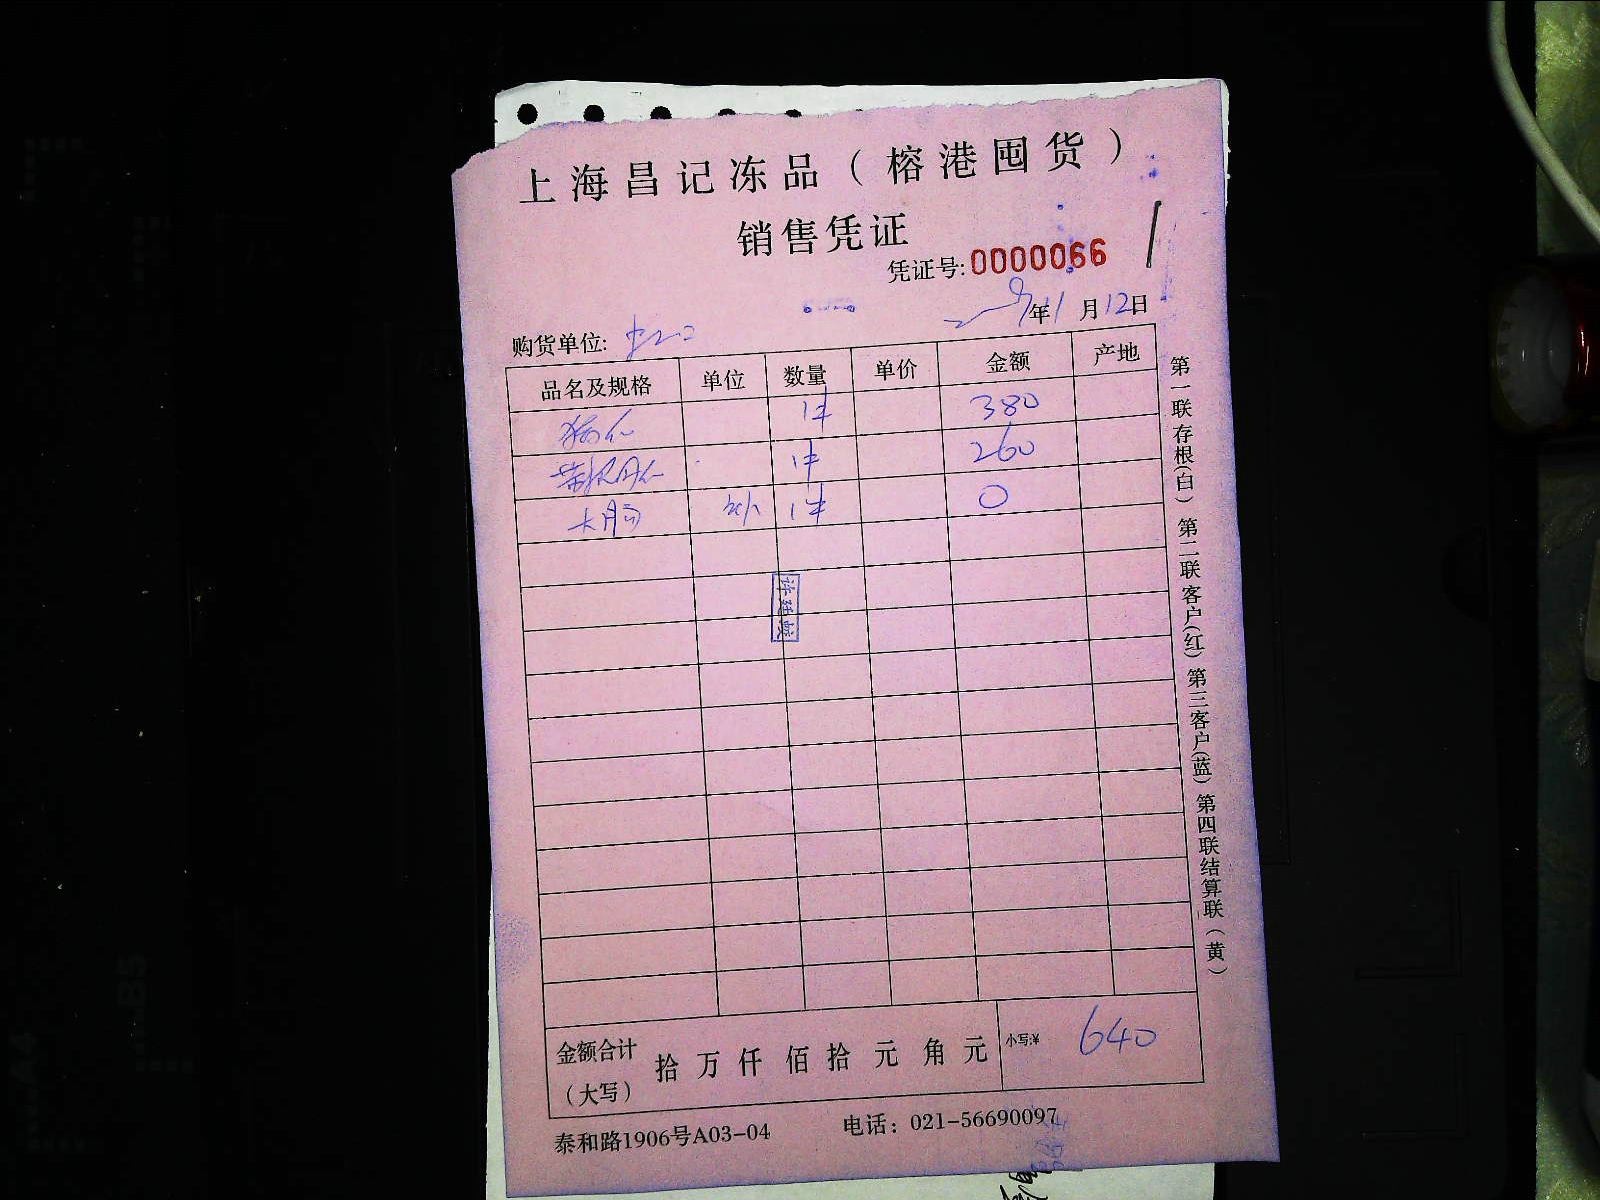 上海昌记冻品（榕港囤货）
销售凭证
凭证号:0000066
年11月12日
购货单位:
品名及规格 单位 数量 单价 金额 产地
1件 380
1件 260
1件 0
许廷蛟
金额合计（大写） 拾 万 仟 佰 拾 元 角 元 小写:¥ 640
泰和路1906号A03-04 电话：021-56690097
第一联存根(白) 第二联客户(红) 第三客户(蓝) 第四联结算联(黄)